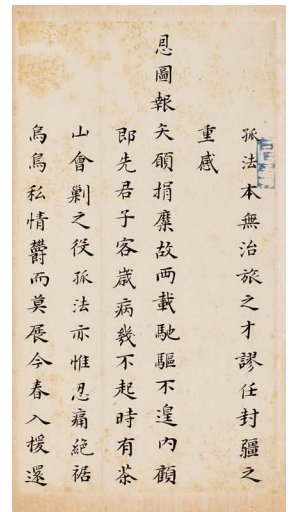 孤法本無治旅之才謬任封疆之
重感
恩圖報矢願捐糜故両載馳驅不遑內顧
即先君子客歲病幾不起時有茶
山會剿之役孤法亦惟忍痛絕裾
烏鳥私情欝而莫展今春入援還